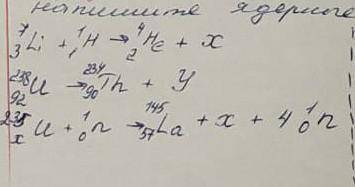 напишите ядерные
⁷₃Li + ¹₁H → ⁴₂He + X
²³⁸₉₂U → ²³⁴₉₀Th + Y
²³⁵ₓU + ¹₀n → ¹⁴⁵₅₇La + x + 4 ¹₀n